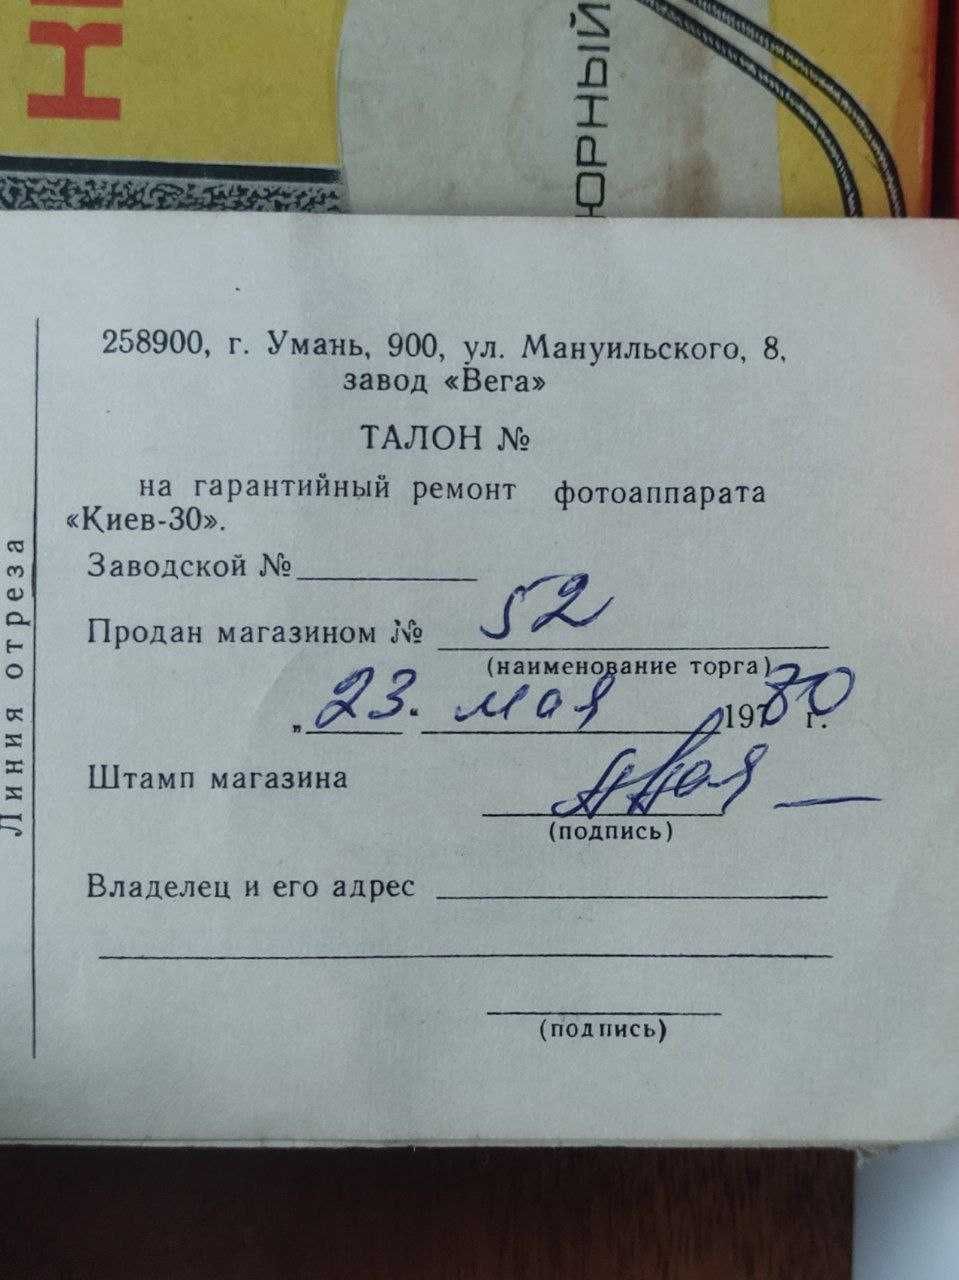 ЮРНЫЙ
258900, г. Умань, 900, ул. Мануильского, 8,
завод «Вега»
ТАЛОН №
на гарантийный ремонт фотоаппарата
«Киев-30».
Заводской №
Продан магазином № 52
(наименование торга)
„23. мая 1980 г.
Штамп магазина
(подпись)
Владелец и его адрес
(подпись)
Линия отреза